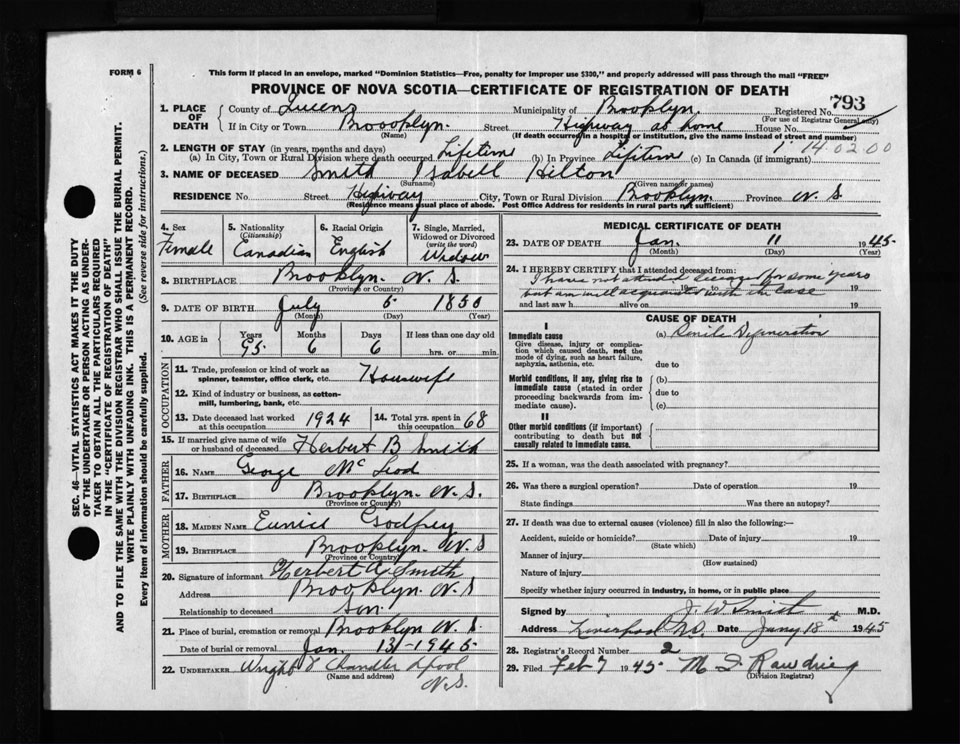 FORM 6
This form if placed in an envelope, marked "Dominion Statistics—Free, penalty for improper use $300," and properly addressed will pass through the mail "FREE"
PROVINCE OF NOVA SCOTIA—CERTIFICATE OF REGISTRATION OF DEATH
SEC. 46—VITAL STATISTICS ACT MAKES IT THE DUTY
OF THE UNDERTAKER OR PERSON ACTING AS UNDER-
TAKER TO OBTAIN ALL THE PARTICULARS REQUIRED
IN THE "CERTIFICATE OF REGISTRATION OF DEATH"
AND TO FILE THE SAME WITH THE DIVISION REGISTRAR WHO SHALL ISSUE THE BURIAL PERMIT.
WRITE PLAINLY WITH UNFADING INK. THIS IS A PERMANENT RECORD.
Every item of information should be carefully supplied. (See reverse side for instructions.)
1. PLACE OF DEATH County of Queens Municipality of Brooklyn Registered No. 793
(For use of Registrar General only)
If in City or Town Broooklyn. Street Highway at home House No.
(If death occurred in a hospital or institution, give the name instead of street and number)
2. LENGTH OF STAY (in years, months and days) 1 14 02 00
(a) In City, Town or Rural Division where death occurred Lifetime (b) In Province Lifetime (c) In Canada (if immigrant)
3. NAME OF DECEASED Smith Isabell Hilton
(Surname) (Given name or names)
RESIDENCE No. Street Highway City, Town or Rural Division Brooklyn. Province N. S
(Residence means usual place of abode. Post Office Address for residents in rural parts not sufficient)
4. Sex Female
5. Nationality (Citizenship) Canadian
6. Racial Origin English
7. Single, Married, Widowed or Divorced (write the word) Widow
8. BIRTHPLACE Brooklyn. N. S.
(Province or Country)
9. DATE OF BIRTH July 5 1850
(Month) (Day) (Year)
10. AGE in Years Months Days If less than one day old
95 6 6 hrs. or min.
OCCUPATION
11. Trade, profession or kind of work as spinner, teamster, office clerk, etc. Housewife
12. Kind of industry or business, as cotton-mill, lumbering, bank, etc.
13. Date deceased last worked at this occupation 1924 14. Total yrs. spent in this occupation 68
15. If married give name of wife or husband of deceased Herbert B Smith
FATHER
16. NAME George McLeod
17. BIRTHPLACE Brooklyn. N. S.
(Province or Country)
MOTHER
18. MAIDEN NAME Eunice Godfrey
19. BIRTHPLACE Brooklyn. N. S
(Province or Country)
20. Signature of informant Herbert A. Smith
Address Brooklyn. N. S
Relationship to deceased Son
21. Place of burial, cremation or removal Brooklyn N. S.
Date of burial or removal Jan. 13 - 1945
22. UNDERTAKER Wright & Chandler Lpool
(Name and address) N. S.
MEDICAL CERTIFICATE OF DEATH
23. DATE OF DEATH Jan. 11 1945.
(Month) (Day) (Year)
24. I HEREBY CERTIFY that I attended deceased from:
I have not attended deceased for some years
19 to 19
but am well acquainted with the case
and last saw h alive on 19
CAUSE OF DEATH
I
Immediate cause (a) Senile Degeneration
Give disease, injury or complica-
tion which caused death, not the
mode of dying, such as heart failure,
asphyxia, asthenia, etc. due to
Morbid conditions, if any, giving rise to (b)
immediate cause (stated in order
proceeding backwards from im- due to
mediate cause). (c)
II
Other morbid conditions (if important)
contributing to death but not
causally related to immediate cause.
25. If a woman, was the death associated with pregnancy?
26. Was there a surgical operation? Date of operation 19
State findings Was there an autopsy?
27. If death was due to external causes (violence) fill in also the following:—
Accident, suicide or homicide? Date of injury 19
(State which)
Manner of injury
(How sustained)
Nature of injury
Specify whether injury occurred in Industry, in home, or in public place
Signed by J. W Smith M.D.
Address Liverpool N.S. Date Jany 18th 1945
28. Registrar's Record Number 2
29. Filed Feb 7 1945
(Division Registrar)